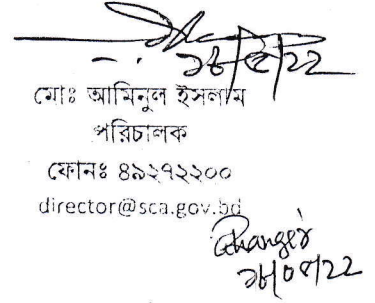 ২৮/৫/২২
মোঃ আমিনুল ইসলাম
পরিচালক
ফোনঃ ৪৯২৭২২০০
director@sca.gov.bd